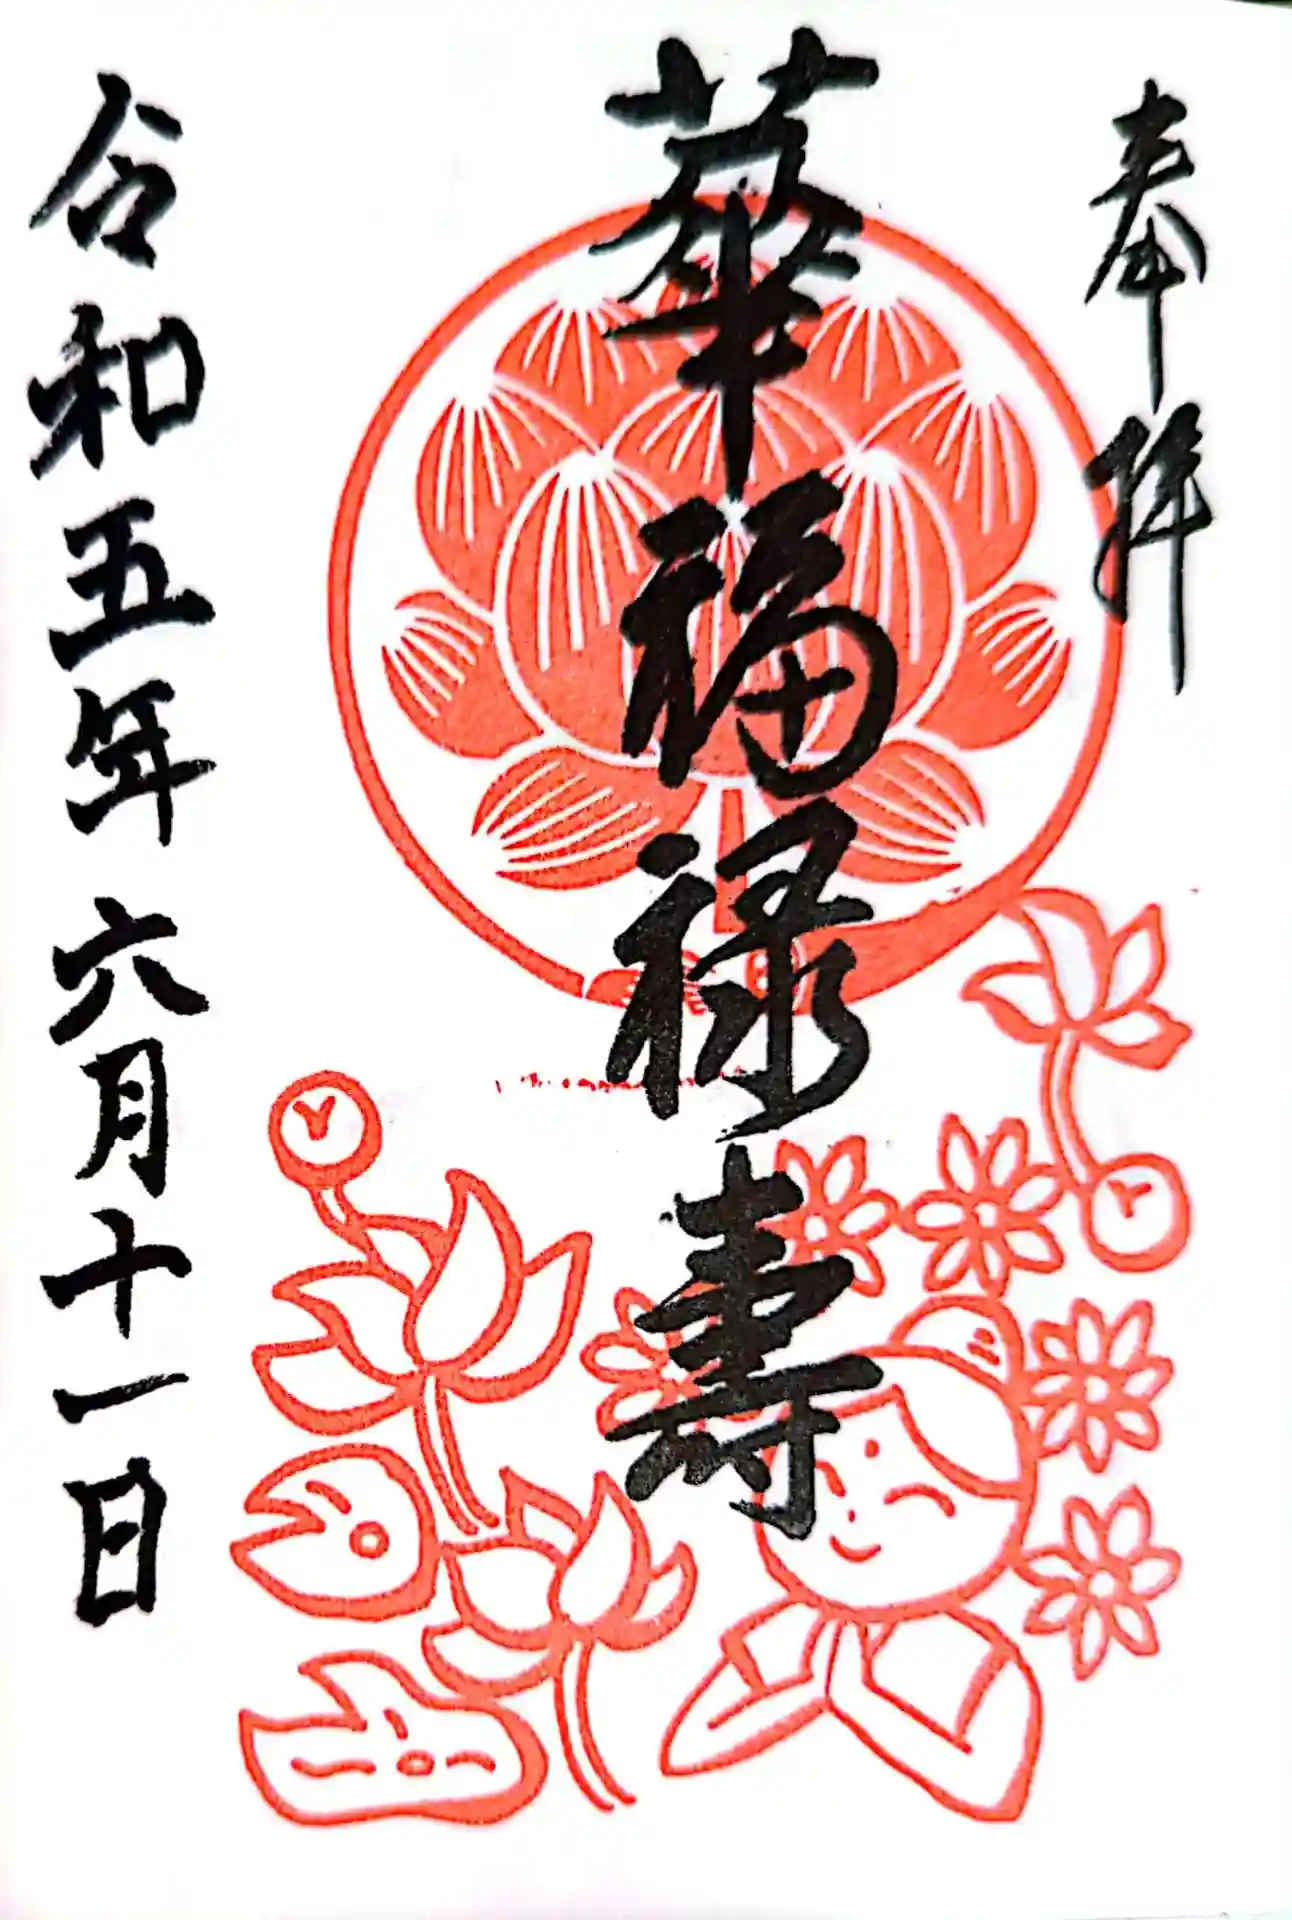 奉拝
華福禄壽
令和五年六月十一日